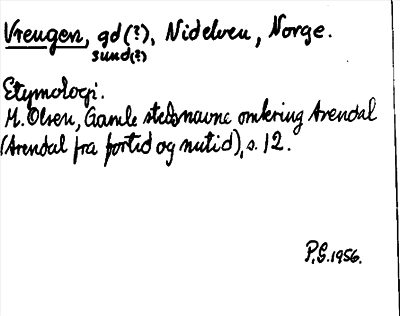 Vreugen, gd(?), Nidelven, Norge.
sund(?)
Etymologi.
M. Olsen, Gamle stedsnavne omkring Arendal
(Arendal fra fortid og nutid), s. 12.
P.G. 1956.